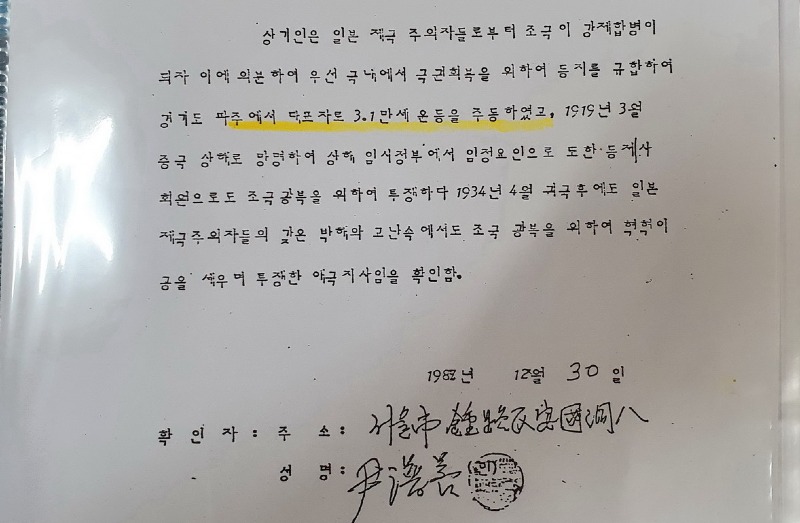 상기인은 일본 제국 주의자들로부터 조국이 강제합병이
되자 이에 의분하여 우선 국내에서 국권회복을 위하여 동지를 규합하여
경기도 파주에서 대표자로 3.1만세 운동을 주동하였고, 1919년 3월
중국 상해로 망명하여 상해 임시정부에서 임정요인으로 또한 동제사
회원으로도 조국광복을 위하여 투쟁하다 1934년 4월 귀국후에도 일본
제국주의자들의 갖은 박해와 고난속에서도 조국 광복을 위하여 혁혁이
공을 세우며 투쟁한 애국지사임을 확인함.
12월 30일
확 인 자 : 주 소 : 서울市 鍾路区安國洞八
성 명 : 尹潽善